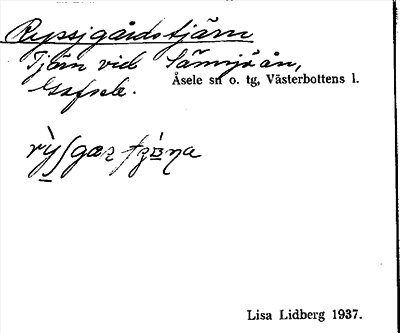 Rypsjgårdstjärn
Tjärn vid Sämsjöån,
Gafsele. Åsele sn o. tg, Västerbottens l.
Lisa Lidberg 1937.